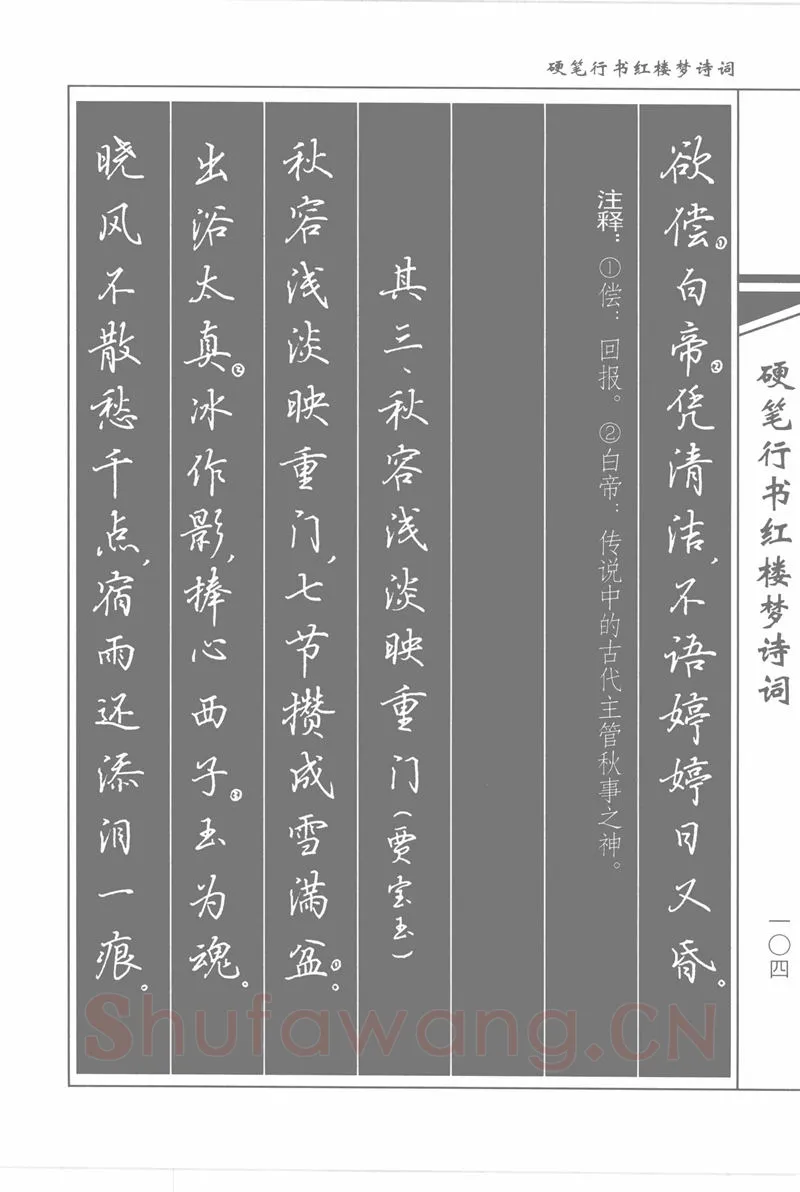 硬笔行书红楼梦诗词
欲偿①白帝②凭清洁，不语婷婷日又昏。
注释：①偿：回报。②白帝：传说中的古代主管秋事之神。
其三、秋容浅淡映重门（贾宝玉）
秋容浅淡映重门，七节攒成雪满盆①。
出浴太真②冰作影，捧心西子③玉为魂。
晓风不散愁千点，宿雨还添泪一痕。
硬笔行书红楼梦诗词
一〇四
Shufawang.CN